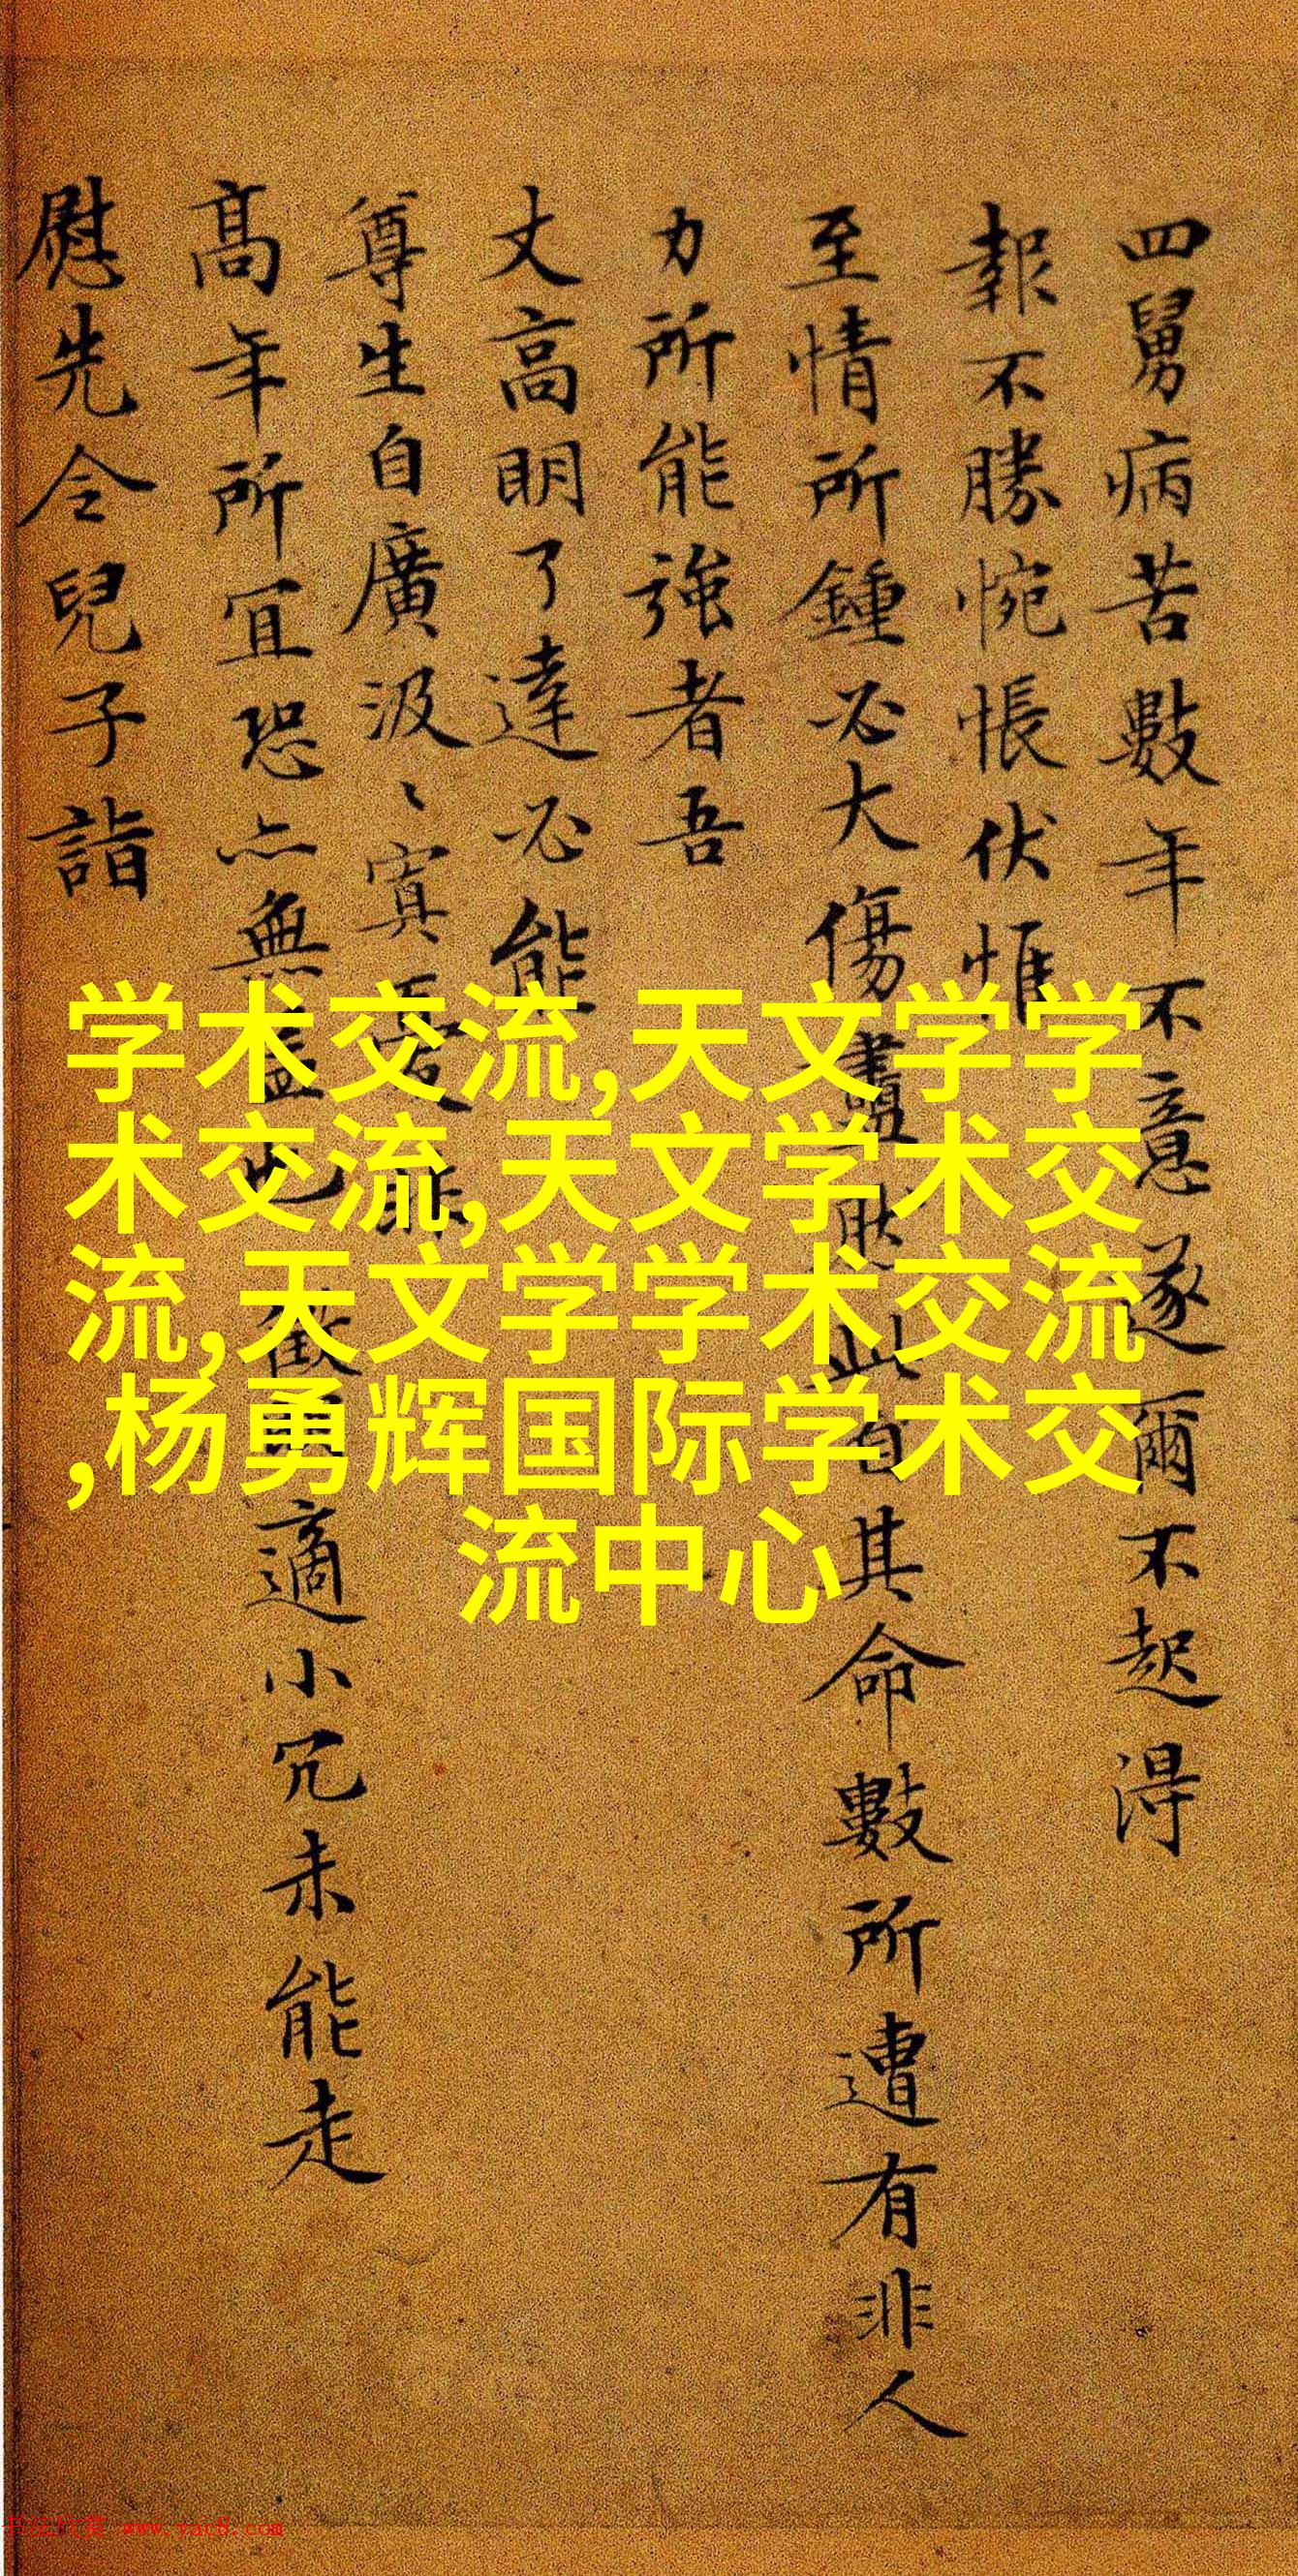 四舅病苦數年不意遂爾不起得
報不勝惋悵伏惟
至情所鍾必大傷
其命數所遭有非人
力所能強者吾
丈高明了達必能
尊生自廣汲〻寘
高年所宜恐亦無
適小冗未能走
慰先令兒子詣
学术交流,天文学学
术交流,天文学术交
流,天文学学术交流
,杨勇辉国际学术交
流中心
书法欣赏 www.yac8.com